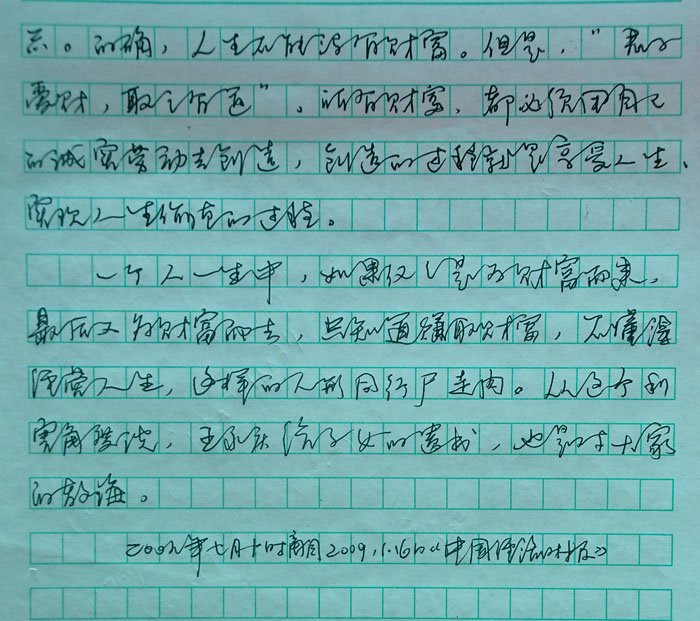 示。的确，人生不能没有财富。但是，“君子
爱财，取之有道”。所有财富，都必须用自己
的诚实劳动去创造，创造的过程就是享受人生、
实现人生价值的过程。
一个人一生中，如果仅仅是为财富而来，
最后又为财富而去，只知道赚取财富，不懂得
经营人生，这样的人形同行尸走肉。从这个利
害角度说，王永庆给子女的遗书，也是对大家
的教诲。
年七月 2009.1.16日《中国经济时报》